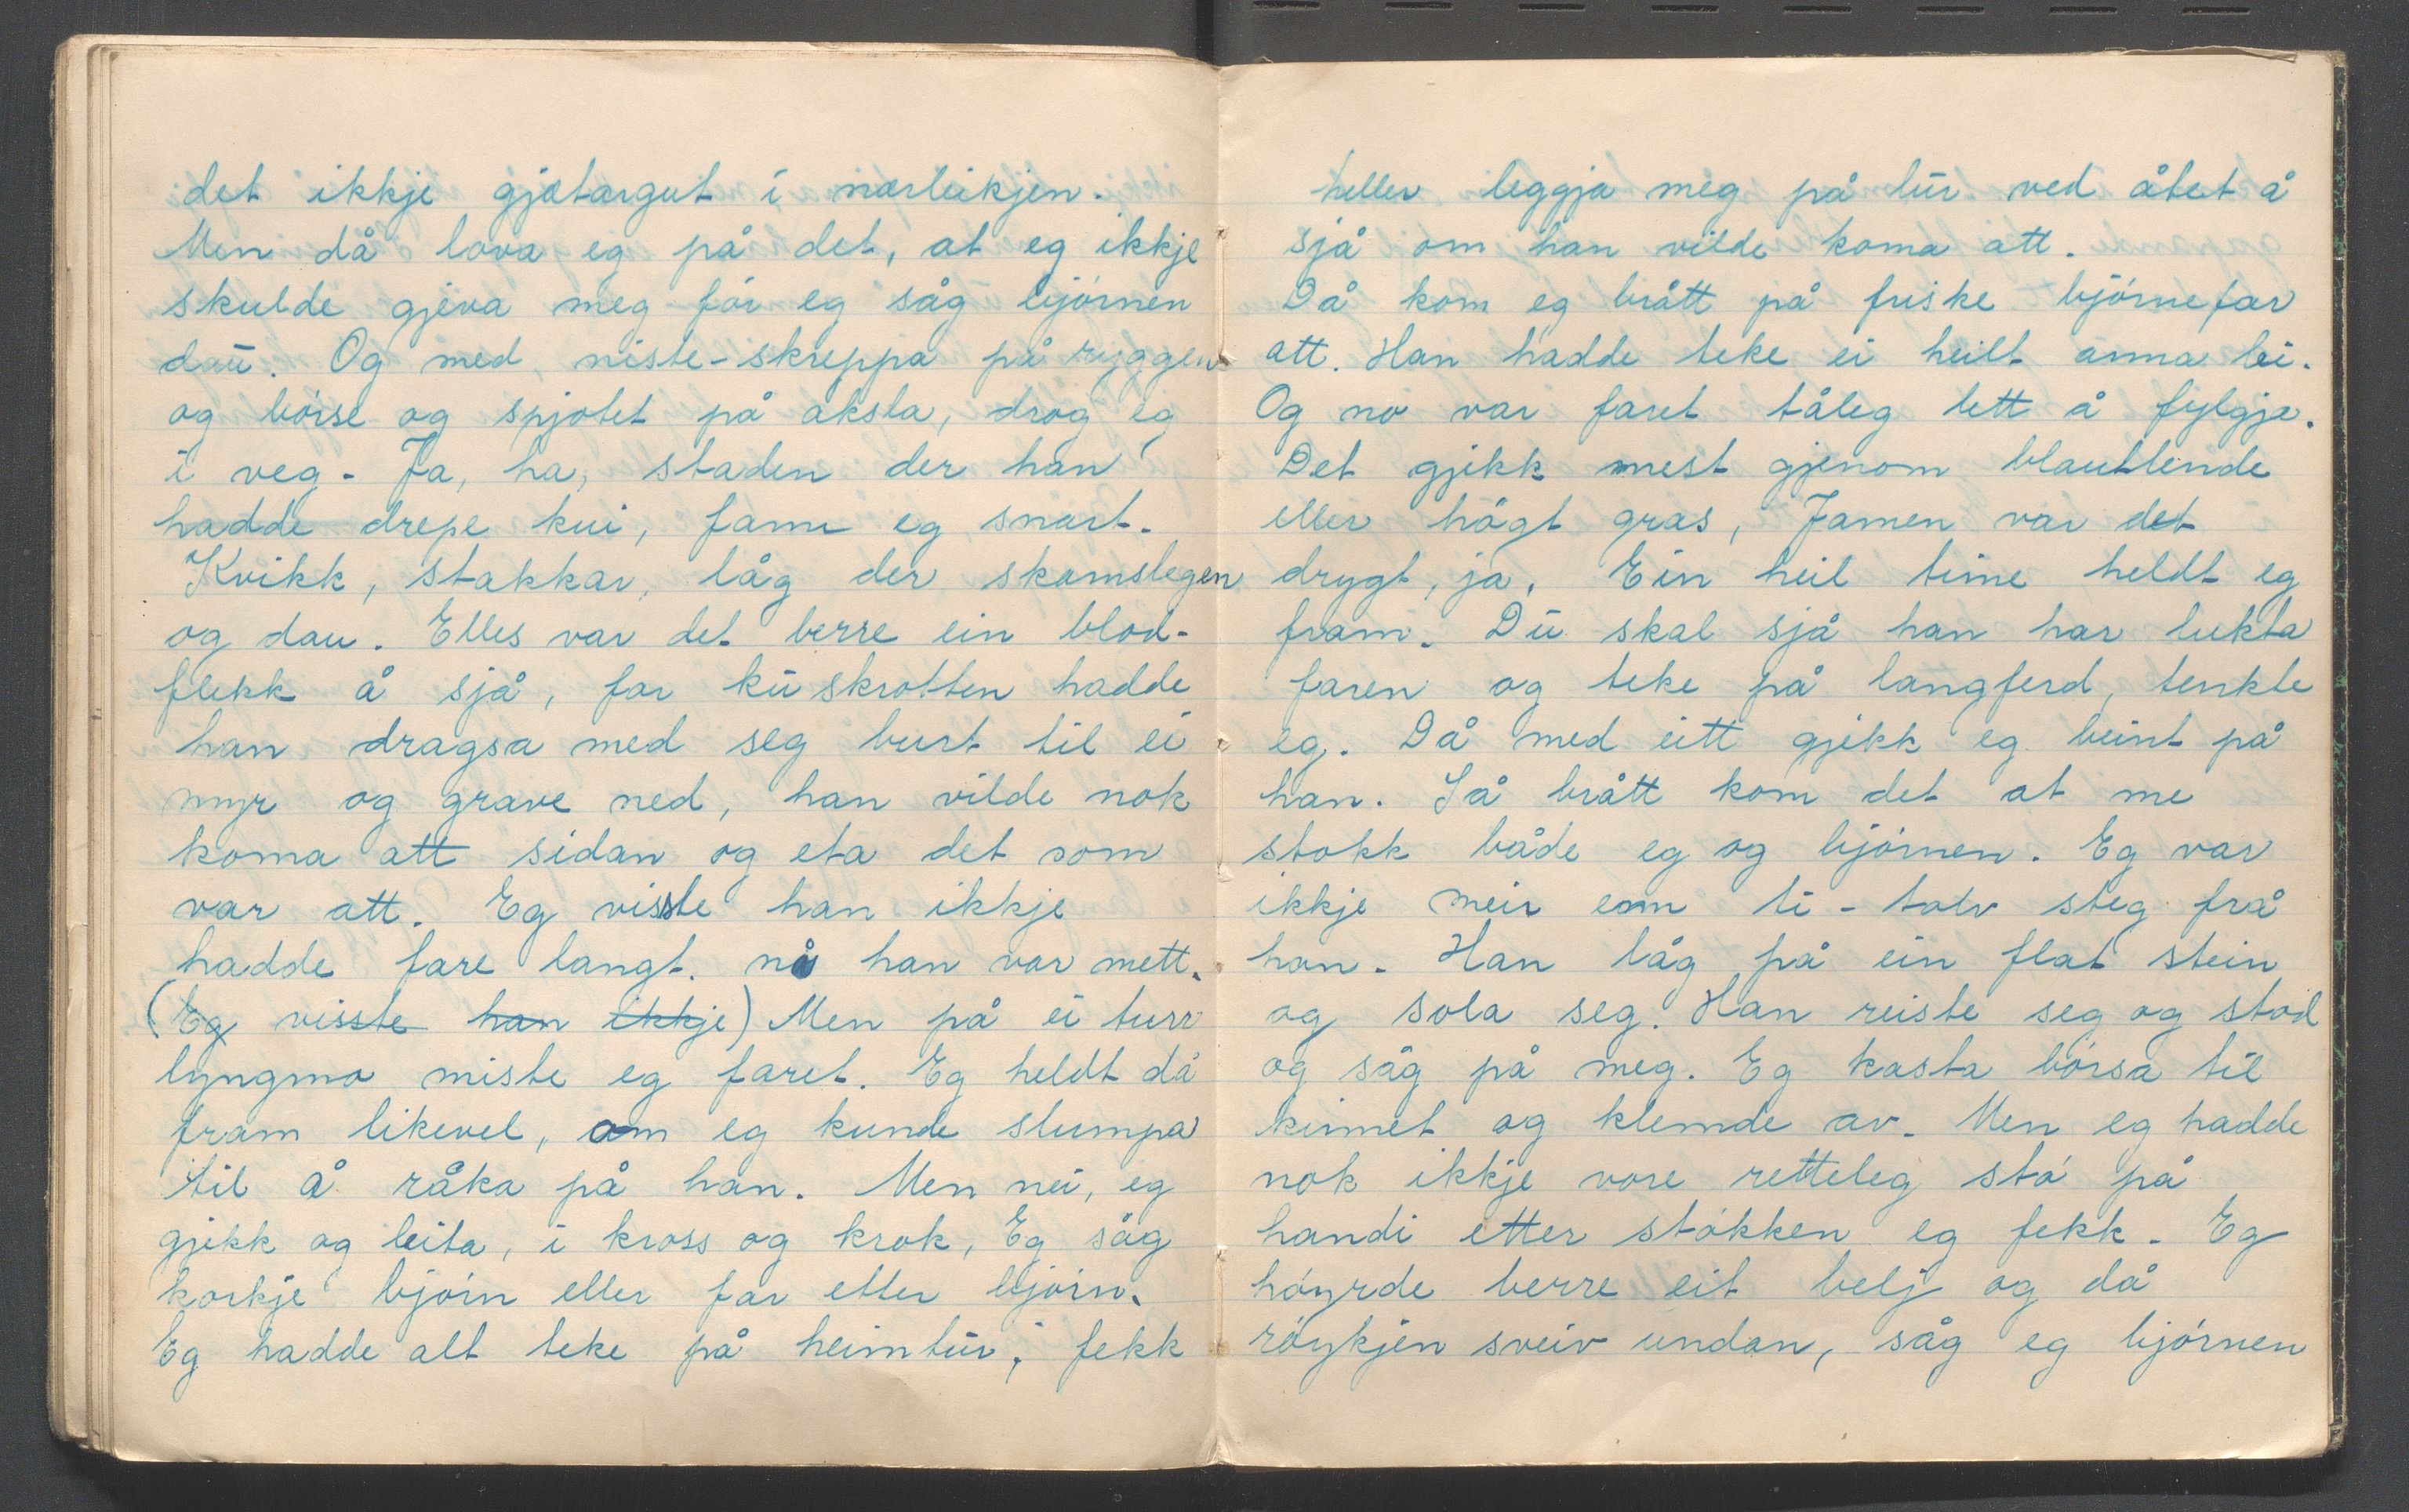 det ikkje gjætargut i nærleikjen.
Men då lova eg på det, at eg ikkje
skulde gjeva meg før eg såg bjørnen
dau. Og med niste-skreppa på ryggen
og børse og spjotet på aksla, drog eg
i veg. Ja, ha, staden der han
hadde drepe kui, fann eg snart.
Kvikk, stakkar, låg der skamslegen
og dau. Elles var det berre ein blod-
flekk å sjå, for kuskrotten hadde
han dragsa med seg burt til ei
myr og grave ned, han vilde nok
koma att sidan og eta det som
var att. Eg visste han ikkje
hadde fare langt. nå han var mett.
(Eg visste han ikkje) Men på ei turr
lyngmo miste eg faret. Eg heldt då
fram likevel, om eg kunde slumpa
til å råka på han. Men nei, eg
gjekk og leita, i kross og krok, Eg såg
korkje bjørn eller far etter bjørn.
Eg hadde alt teke på heimtur, fekk
heller leggja meg på lur ved åtet å
sjå om han vilde koma att.
Då kom eg brått på friske bjørnefar
att. Han hadde teke ei heilt anna lei.
Og no var faret tåleg lett å fylgja.
Det gjekk mest gjenom blautlende
eller högt gras, Jamen var det
drygt, ja. Ein heil time heldt eg
fram. Du skal sjå han har lukta
faren og teke på langferd, tenkte
eg. Då med eitt gjekk eg beint på
han. Så brått kom det at me
stokk både eg og bjørnen. Eg var
ikkje meir enn ti-tolv steg frå
han. Han låg på ein flat stein
og sola seg. Han reiste seg og stod
og såg på meg. Eg kasta børsa til
kinnet og klemde av. Men eg hadde
nok ikkje vore retteleg stø på
handi etter støkken eg fekk. Eg
høyrde berre eit belj og då
røykjen sveiv undan, såg eg bjørnen